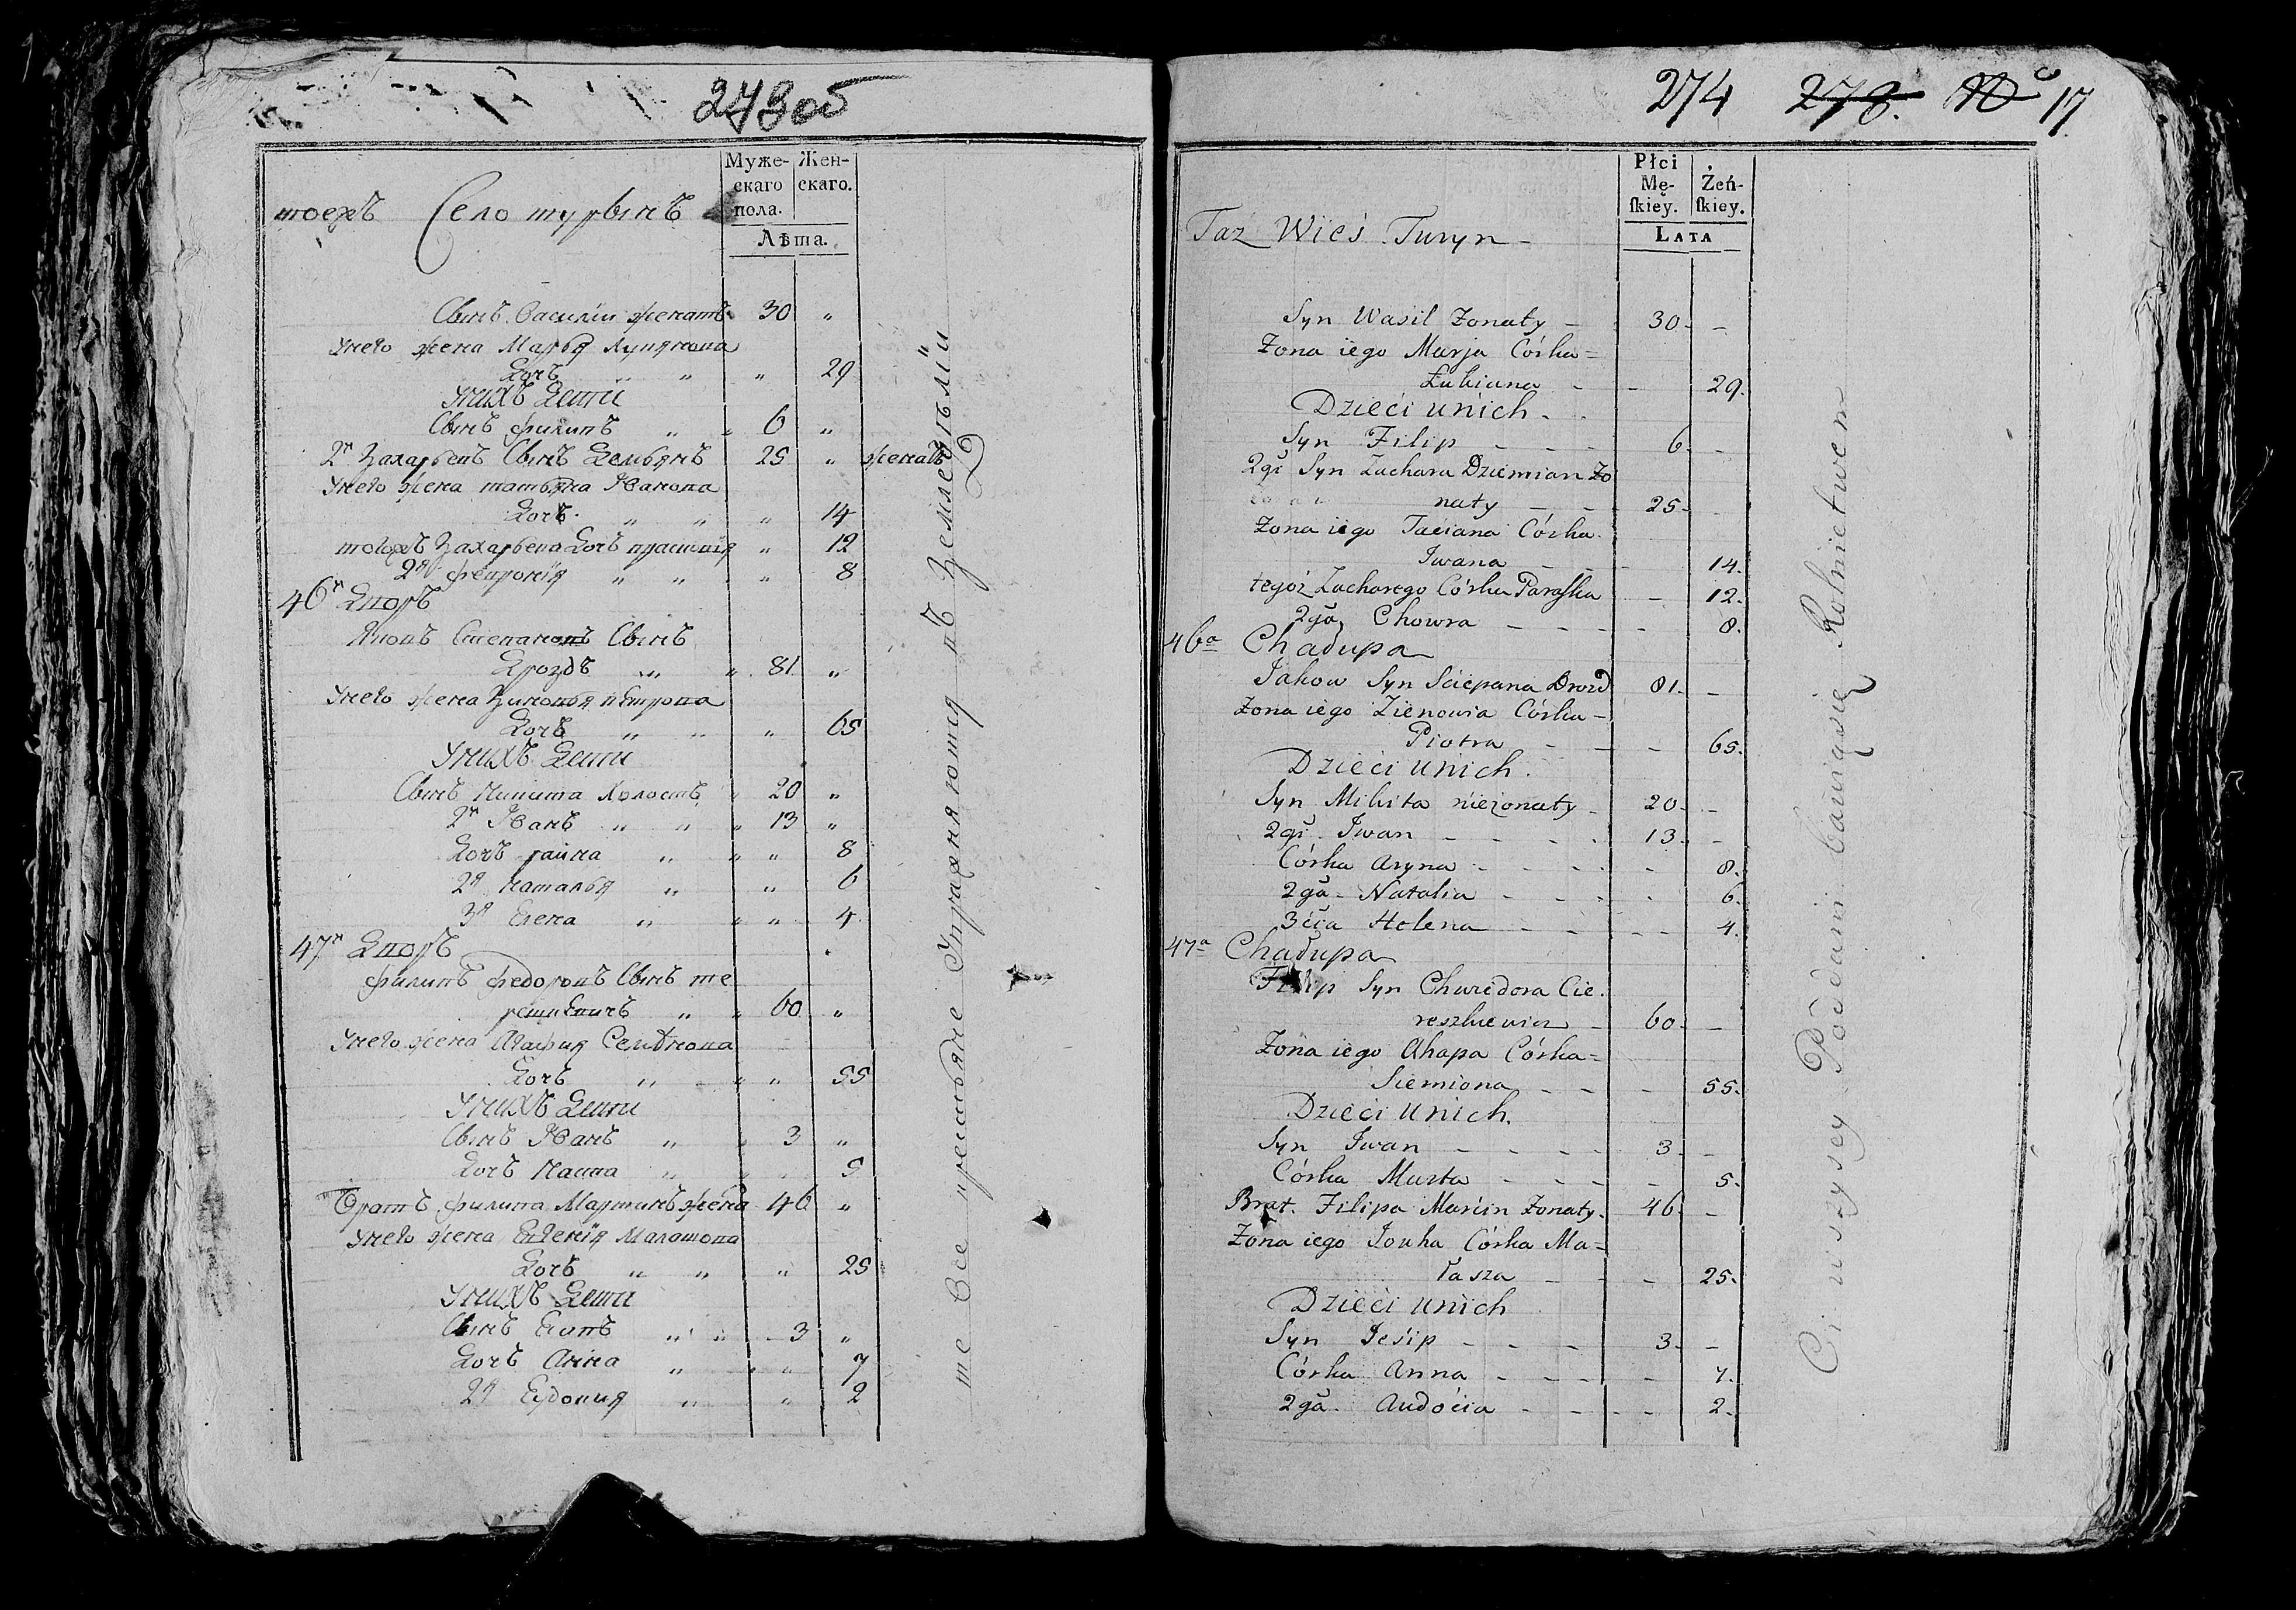 273об
Муже-
скаго
пола.
Жен-
скаго.
Лѣта.
тоежъ Село турынъ
Сынъ Василіи женатъ 30 „
Унего жена Марья Лукянова
Дочъ „ „ „ 29
Унихъ Дети
Сынъ филипъ „ „ 6 „
2й Захарьевъ Сынъ Демьянъ 25 „ женатъ
Унего жена татьяна Иванова
Дочъ „ „ „ 14
тогожъ Захарьева Дочъ прасковія „ 12
2я февронія „ „ „ 8
46й Дворъ
Яковъ Степановъ Сынъ
Дроздъ „ „ 81 „
Унего жена Зиновья петрова
Дочъ „ „ „ 65
Унихъ Дети
Сынъ Никита Холостъ „ 20 „
2й Иванъ „ „ „ 13 „
Дочъ раина „ „ „ 8
2я Наталья „ „ 6
3я Елена „ „ „ 4
47й Дворъ
филипъ федоровъ Сынъ те
решкевичъ „ „ 60 „
Унего жена Агафия Семѣнова
Дочъ „ „ „ 55
Унихъ Дети
Сынъ Иванъ „ „ 3 „
Дочъ „ „ „ 5
Братъ филипа Мартинъ жена 46 „
Унего жена Евгенія Малашова
Дочъ „ „ „ 25
Унихъ Дети
Сынъ „ „ 3 „
Дочъ Анна „ „ „ 7
2я Евдокия „ „ 2
те Все крестьяне Упражняются въ Земледѣліи
274 273. 17
Płci
Mę-
ſkiey.
Żeń-
ſkiey.
LATA
Taż Wieś Turyn -
Syn Wasil Żonaty - 30. -
Żona iego Marja Córka =
Łukiana - - 29.
Dzieci unich. -
Syn Filip - - - 6. -
2gi Syn Zachara Dziemian Żo
naty - - 25. -
Żona iego Taciana Córka
Iwana - - 14.
tegoż Zacharego Córka Paraſka - 12.
2gă Chowra - - - - - 8.
46a Chałupa
Jakow Syn Sciepana Drozd 81. -
Żona iego Zienowia Córka -
Piotra - - - 65.
Dzieci unich.
Syn Mikita nieżonaty - 20. -
2gi. Iwan - - - - 13. -
Córka Aryna - - - - - 8.
2gă - Natalia - - - - - 6.
3cia Helena - - - - - 4.
47a Chałupa
Filip Syn Chwiedora Cie.
reszkiewicz - 60. -
Żona iego Ahapa Córka =
Siemiona - - - 55.
Dzieci unich.
Syn Iwan - - - - 3. -
Córka Marta - - - - - 5.
Brat. Filipa Marcin Żonaty. 46. -
Żona iego Jouha Córka Ma =
łasza - - - 25.
Dzieci unich
Syn Jesip - - - 3. -
Córka Anna - - - - - 7.
2gă. Audocia - - - - 2.
Ci wszyscy Poddani bawiąsię Rolnictwem